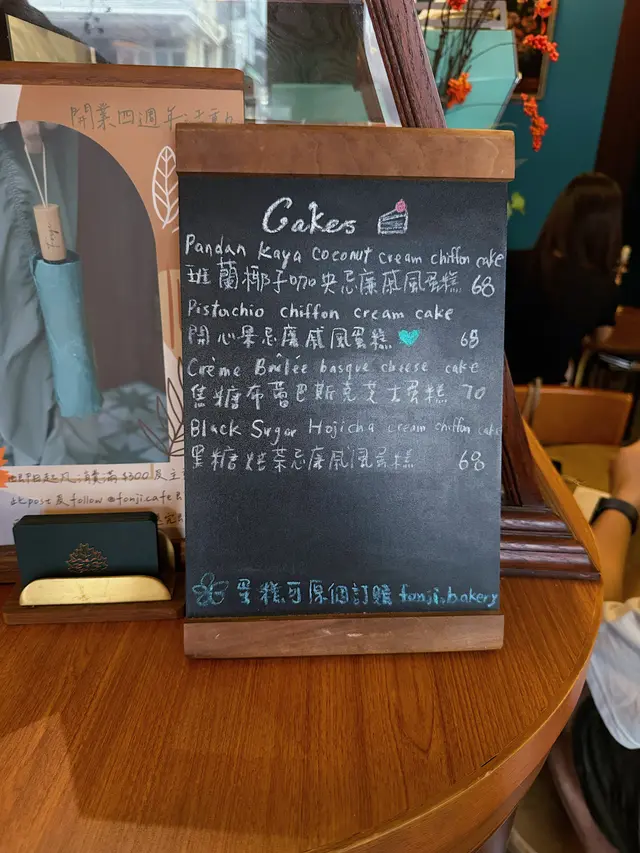 開業四週年
Cakes
Pandan Kaya Coconut cream chiffon cake
班蘭椰子咖央忌廉戚風蛋糕 68
Pistachio chiffon cream cake
開心果忌廉戚風蛋糕 68
Crème Brûlée basque cheese cake
焦糖布蕾巴斯克芝士蛋糕 70
Black Sugar Hojicha cream chiffon cake
黑糖焙茶忌廉戚風蛋糕 68
蛋糕可原個訂購 fonji.bakery
$300及
此post及follow @fonji.cafe